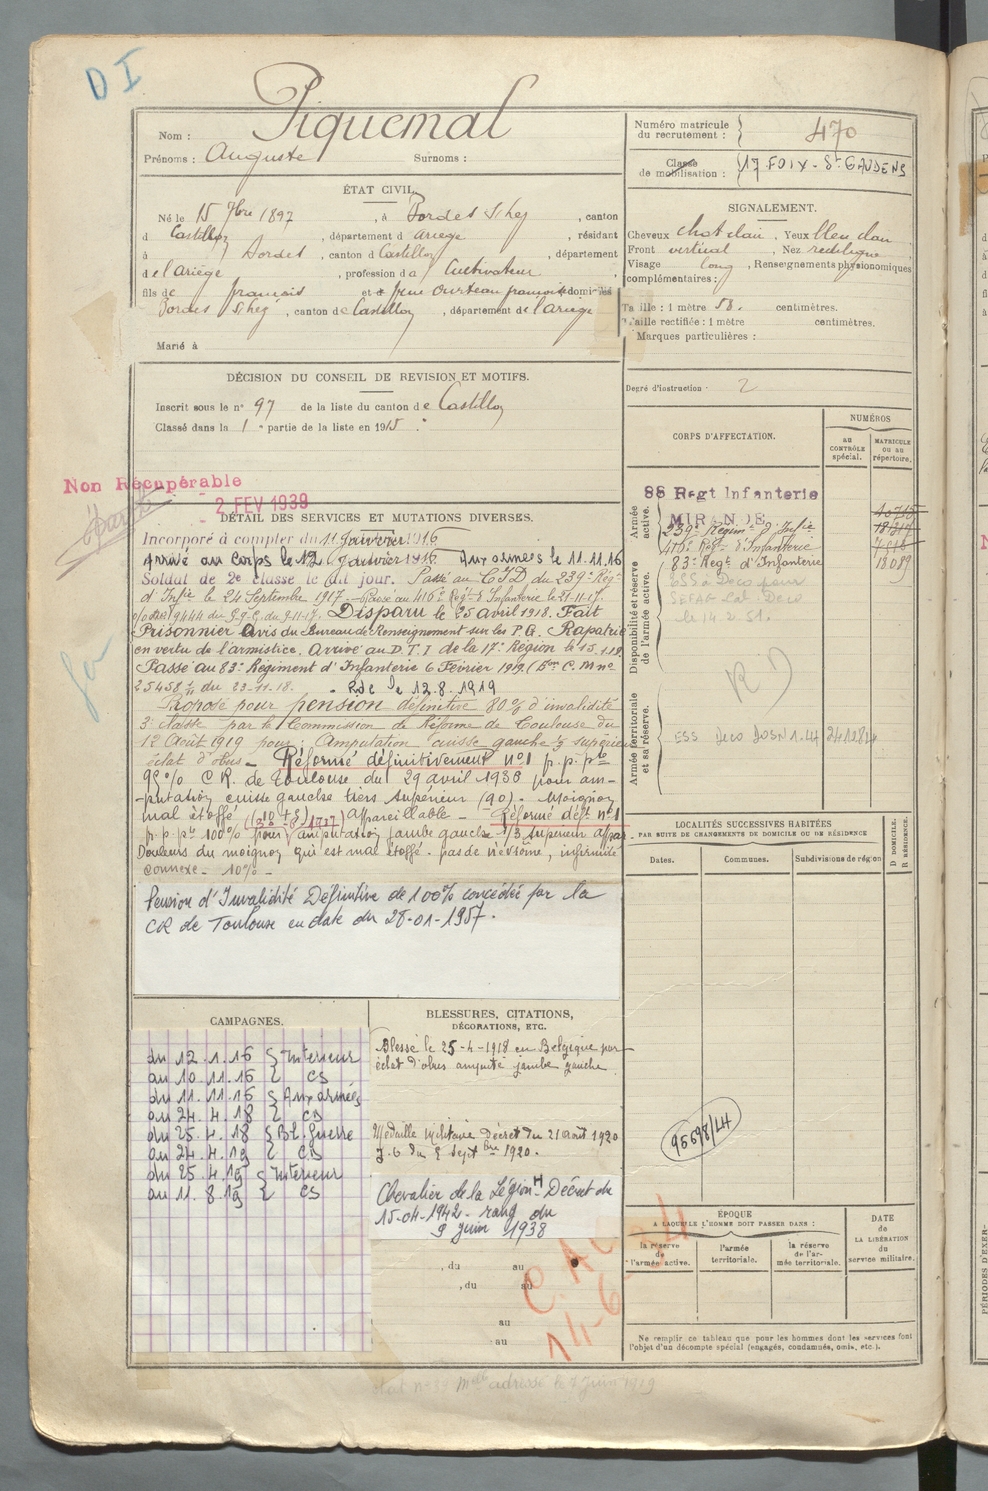 D I
Piquemal
Nom :
Prénoms : Auguste Surnoms :
ÉTAT CIVIL.
Né le 15 7bre 1897, à Bordes s/Lez, canton
d Castillon, département d Ariège, résidant
à Bordes, canton d Castillon, département
de l'Ariège, profession d Cultivateur
fils de François et de françoise domiciliés
Bordes s/Lez, canton de Castillon, département de l'Ariège
Marié à
DÉCISION DU CONSEIL DE REVISION ET MOTIFS.
Inscrit sous le n° 97 de la liste du canton de Castillon
Classé dans la 1e partie de la liste en 1915.
Non Récupérable
2 FEV 1939
DÉTAIL DES SERVICES ET MUTATIONS DIVERSES.
Incorporé à compter du 11 Janvier 1916
Arrivé au corps le 12 Janvier 1916 Aux armées le 11.11.16
Soldat de 2e classe le dit jour. Passé au C.I.D du 239e Régt
d'Infie le 24 Septembre 1917 - Passé au 416e Régt d'Infanterie le 21-11-17.
9444 du G.Q.G. du 9-11-17. Disparu le 25 avril 1918. Fait
Prisonnier Avis du Bureau de Renseignement sur les P.G. Rapatrié
en vertu de l'armistice. Arrivé au D.T.I de la 17e Région le 15.1.19.
Passé au 83e Régiment d'Infanterie 6 Février 1919 (C.M n°
25458 1/11 du 23-11-18. - RDC le 12.8.1919
Proposé pour pension définitive 80% d'invalidité
3e classe par la Commission de Réforme de Toulouse du
12 Août 1919 pour : Amputation cuisse gauche 1/3 supérieur
éclat d'obus - Réformé définitivement n°1 p.p.pte
95% C.R. de Toulouse du 29 avril 1936 pour am-
-putation cuisse gauche tiers supérieur (90). Moignon
mal étoffé (10 + 5) appareillable - Réformé déft n°1
p.p.pte 100% pour amputation jambe gauche 1/3 supérieur appar.
Douleurs du moignon qui est mal étoffé. pas de névrome, infirmité
connexe - 10% -
Pension d'Invalidité Définitive de 100% concédée par la
CR de Toulouse en date du 28-01-1957.
CAMPAGNES.
du 12.1.16 } Intérieur
au 10.11.16 } CS
du 11.11.16 } Aux armées
au 24.4.18 } CD
du 25.4.18 } Pri. Guerre
au 24.4.19 } CD
du 25.4.19 } Intérieur
au 11.8.19 } CS
BLESSURES, CITATIONS,
DÉCORATIONS, ETC.
Blessé le 25-4-1918 en Belgique par
éclat d'obus amputé jambe gauche
Médaille Militaire Décret du 21 août 1920
J.O du 5 Septbre 1920.
Chevalier de la Légion H Décret du
15-04-1942 - rang du
9 Juin 1938
, du au
, du au
au
au
Numéro matricule
du recrutement : 470
Classe
de mobilisation : 17 FOIX - St GAUDENS
SIGNALEMENT.
Cheveux chat clair, Yeux bleu clair
Front vertical, Nez rectiligne
Visage long, Renseignements physionomiques
complémentaires :
Taille : 1 mètre 58. centimètres.
Taille rectifiée : 1 mètre centimètres.
Marques particulières :
Degré d'instruction : 2
CORPS D'AFFECTATION.
NUMÉROS
au
CONTRÔLE
spécial.
MATRICULE
ou au
répertoire.
Armée
active.
88 Regt Infanterie
MIRANDE
239e Régim t d'Infie
416e Régt d'Infanterie
83e Regt d'Infanterie 18089
Disponibilité et réserve
de l'armée active.
le 14.2.51.
Armée territoriale
et sa réserve.
LOCALITÉS SUCCESSIVES HABITÉES
PAR SUITE DE CHANGEMENTS DE DOMICILE OU DE RÉSIDENCE
Dates.
Communes.
Subdivisions de région
D DOMICILE.
R RÉSIDENCE.
95598/LH
ÉPOQUE
A LAQUELLE L'HOMME DOIT PASSER DANS :
la réserve
de
l'armée active.
l'armée
territoriale.
la réserve
de l'ar-
mée territoriale.
DATE
de
LA LIBÉRATION
du
service militaire.
Ne remplir ce tableau que pour les hommes dont les services font
l'objet d'un décompte spécial (engagés, condamnés, omis, etc.).
adressé le 7 Juin 1919
PÉRIODES D'EXER-